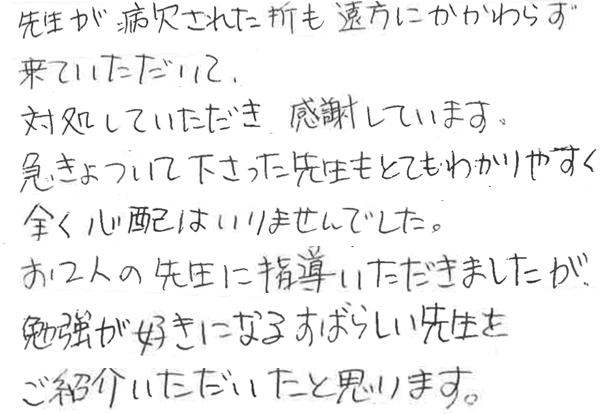 先生が病欠された折も遠方にかかわらず
来ていただいて、
対処していただき 感謝しています。
急きょついて下さった先生もとてもわかりやすく
全く心配はいりませんでした。
お2人の先生に指導いただきましたが、
勉強が好きになるすばらしい先生を
ご紹介いただいたと思ります。